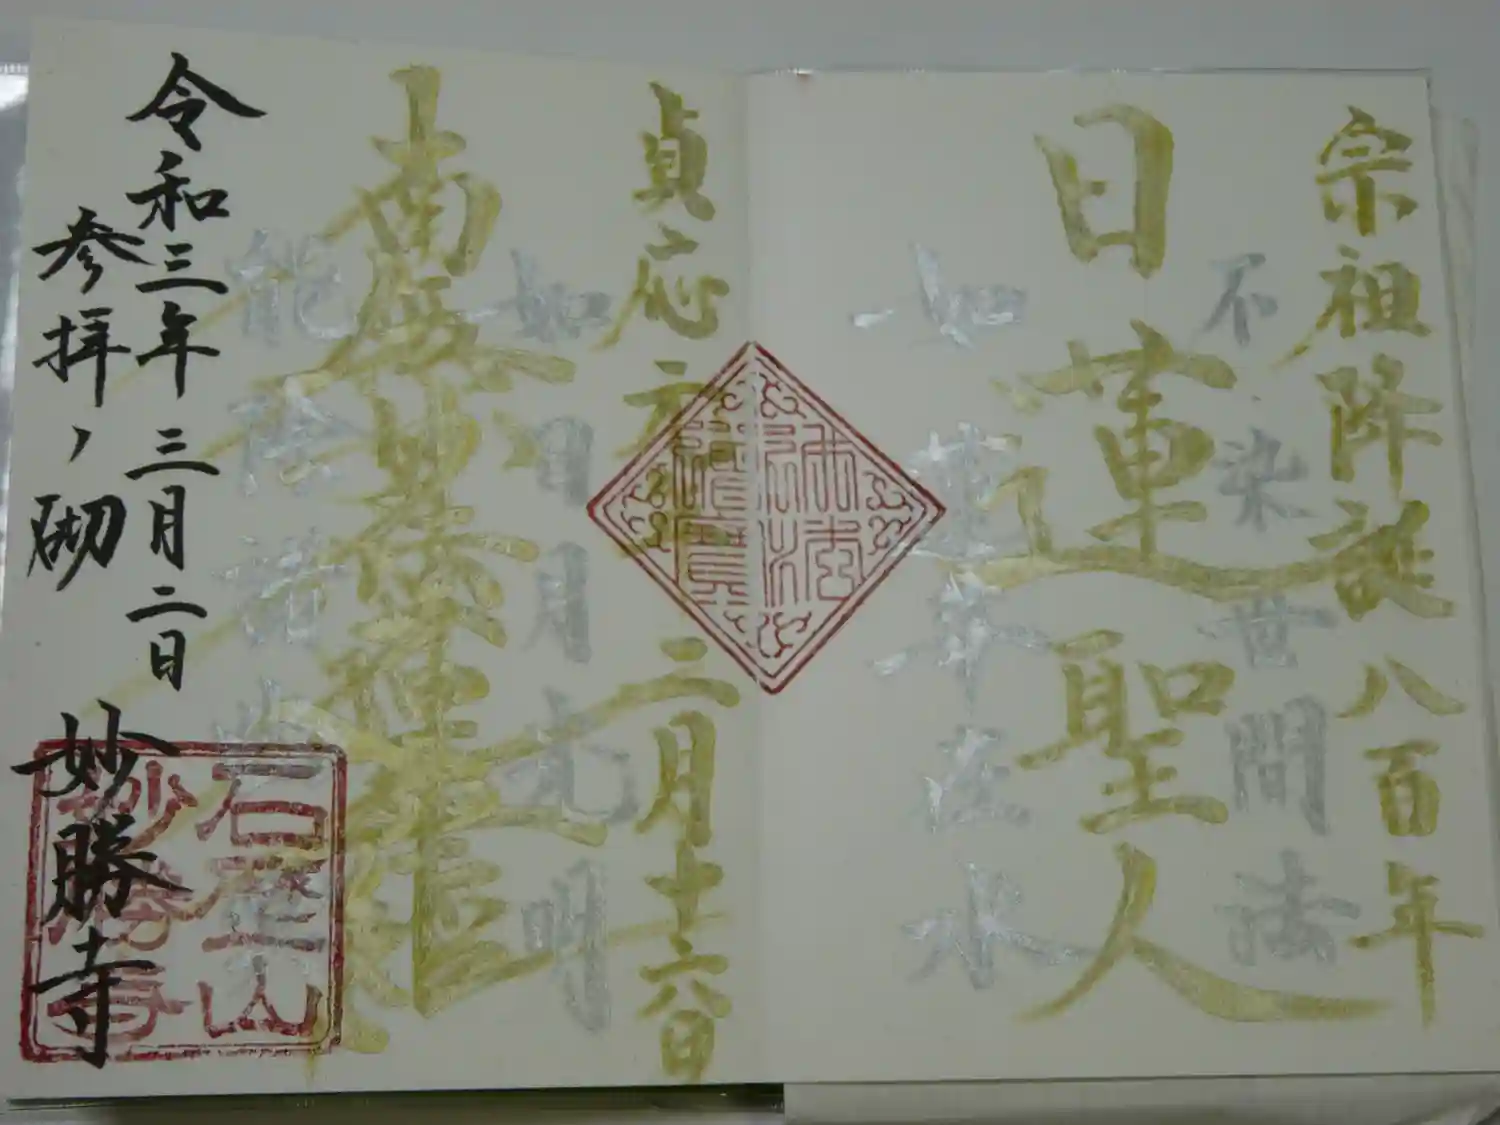 宗祖降誕八百年
不染世間法
日蓮聖人
如蓮華在水
貞応元
二月十六日
如日月光明
南無妙法蓮華経
能除諸幽
令和三年三月二日
参拝ノ砌
妙勝寺
妙勝寺